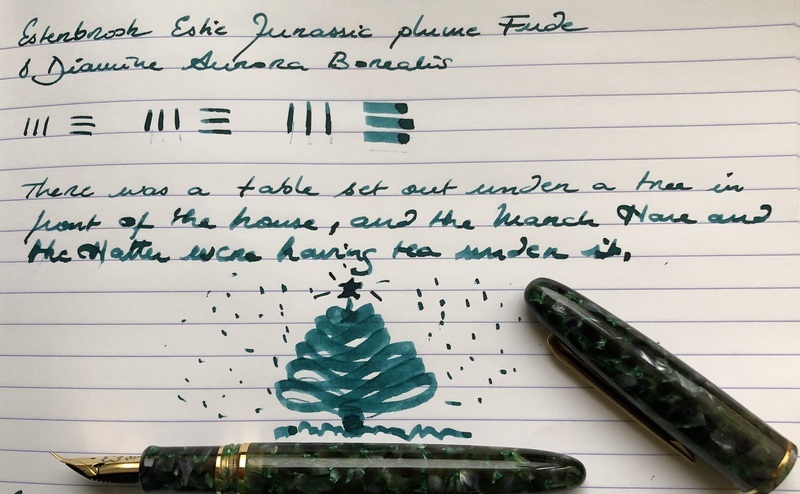 Esterbrook Estie Jurassic plume Fude
& Diamine Aurora Borealis
There was a table set out under a tree in
front of the house, and the March Hare and
the Hatter were having tea under it,